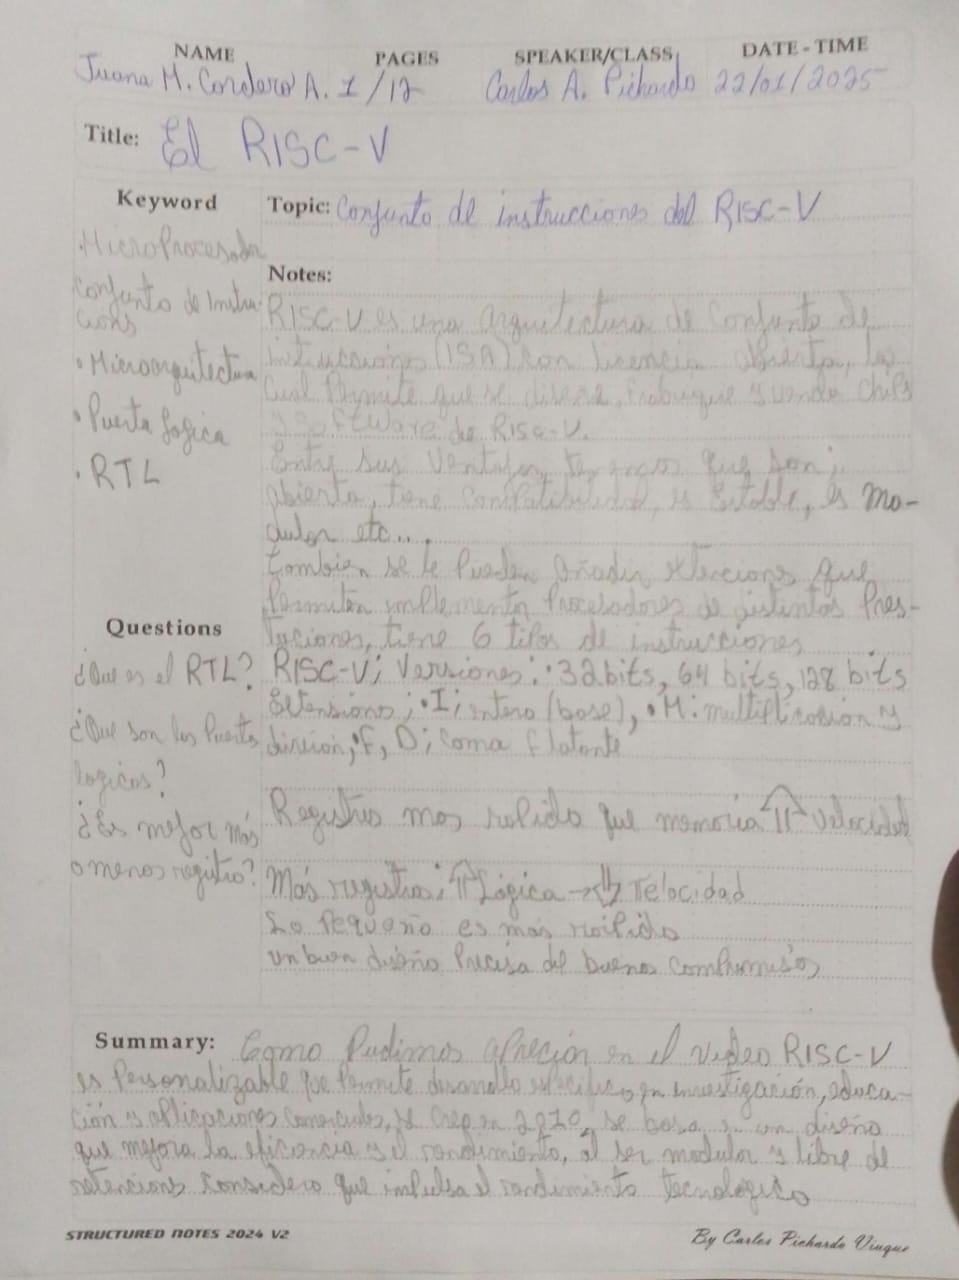 NAME PAGES SPEAKER/CLASS DATE - TIME
Juana M. Cordero A. 1/12 Carlos A. Pichardo 22/01/2025
Title: El RISC-V
Keyword
• MicroProcesador
Conjunto de Instru-
cions
• Microarquitectura
• Puerta logica
• RTL
Topic: Conjunto de instrucciones del RISC-V
Notes:
RISC-V es una arquitectura de conjunto de
intrucciones (ISA) con licencia abierta, la
cual permite que se diseñe, frabrique y venda chips
y software de Risc-V.
Entre sus ventajas que son;
abierta, tiene compatibilidad, es Estable, es mo-
dular etc...
tambien se le pueden añadir xtenciones que
permiten implementar procesadores de distintas Pres-
taciones, tiene 6 tipos de instrucciones
RISC-V; Versiones: • 32bits, 64 bits, 128 bits
Extensiones; • I; entero (base), • M: multiplicacion y
division, • F, D; coma flotante
Registros mas rapido que memoria ⇑ velocidad
Más registros; ⇑ Lógica → ⇓ Velocidad
Lo Pequeño es mas rapido
un buen diseño precisa de buenos compromisos
Questions
¿Que es el RTL?
¿Que son las Puerta
logicas?
¿Es mejor más
o menos registro?
Summary: Como Pudimos apreciar en el video RISC-V
es Personalizable que permite desarrollo especifico, en investigación, educa-
ción y aplicaciones comerciales, se creo en 2010, se basa en un diseño
que mejora la eficiencia y el rendimiento, al ser modular y libre de
considero que impulsa el rendimiento tecnologico
STRUCTURED NOTES 2024 V2
By Carlos Pichardo Viuque